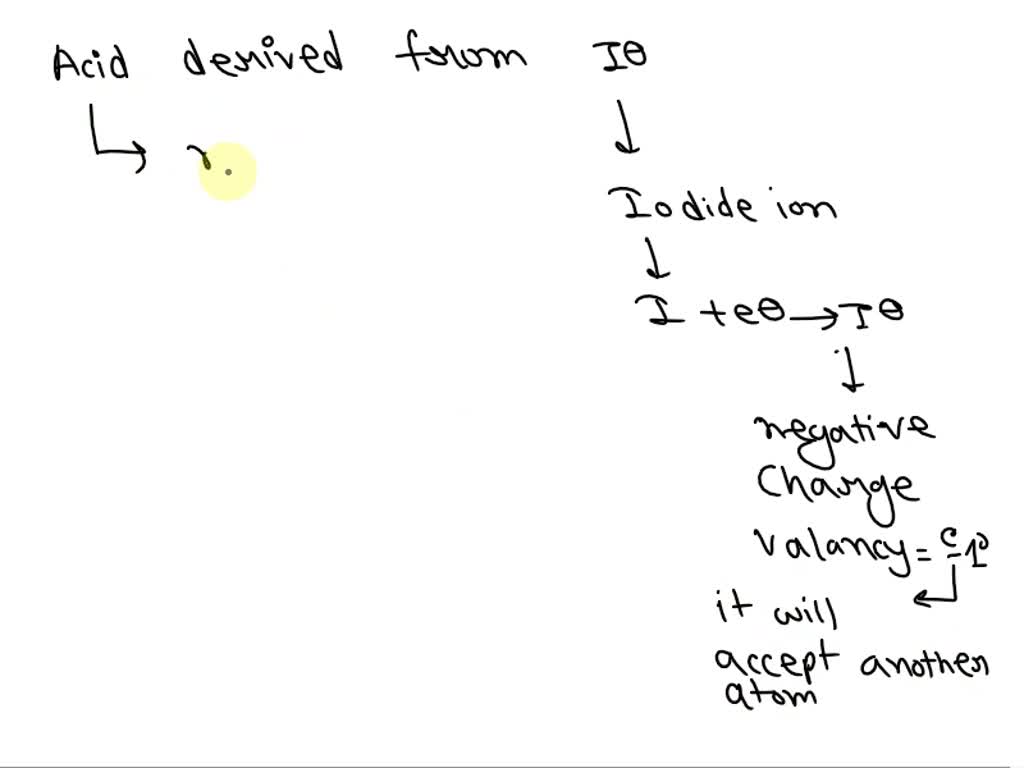 Acid derived from I⊖
Iodide ion
I + e⊖ → I⊖
negative
charge
valancy =
it will
accept another
atom